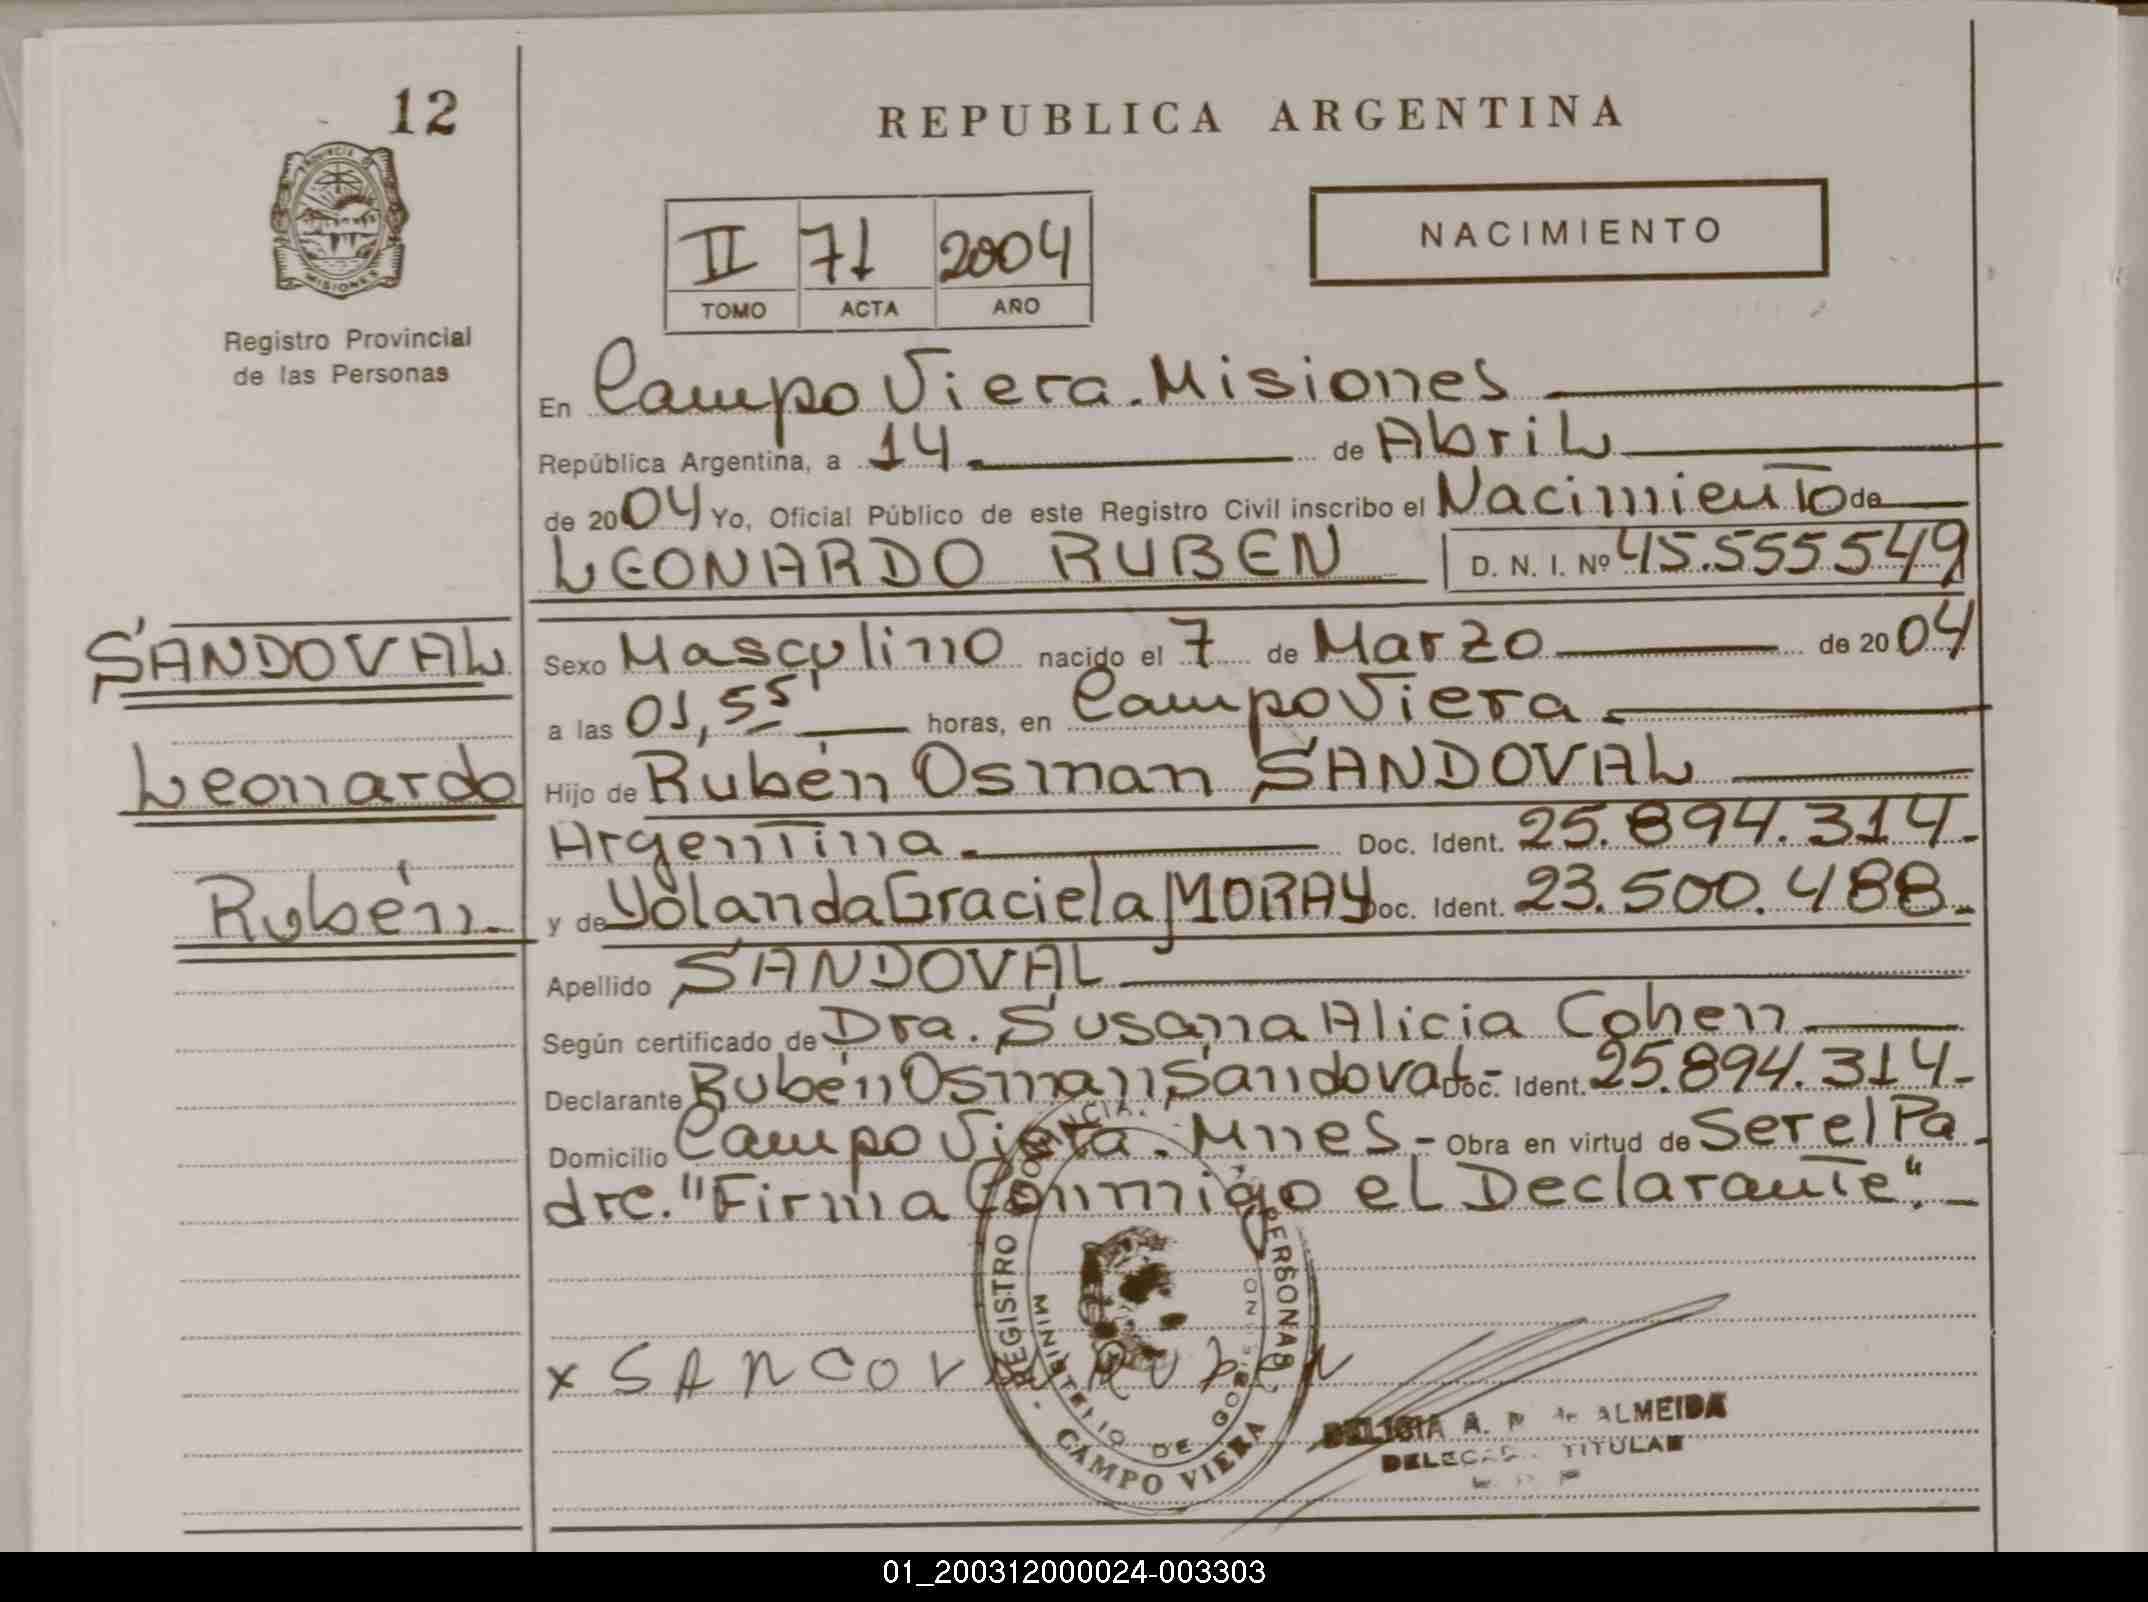 12
REPUBLICA ARGENTINA
PROVINCIA DE
MISIONES
Registro Provincial
de las Personas
II 71 2004
TOMO ACTA AÑO
NACIMIENTO
En Campo Viera. Misiones
República Argentina, a 14. de Abril
de 2004 Yo, Oficial Público de este Registro Civil inscribo el Nacimiento de
LEONARDO RUBEN D. N. I. Nº 45.555549
SANDOVAL
Leonardo
Rubén.
Sexo Masculino nacido el 7 de Marzo de 2004
a las 01,55' horas, en Campo Viera.
Hijo de Rubén Osman SANDOVAL
Argentina. Doc. Ident. 25.894.314.
y de Yolanda Graciela MORAY Doc. Ident. 23.500.488.
Apellido SANDOVAL
Según certificado de Dra. Susana Alicia Cohen
Declarante Rubén Osman Sandoval- Doc. Ident. 25.894.314.
Domicilio Campo Viera. Mnes.- Obra en virtud de Ser el Pa
dre. "Firma Conmigo el Declarante".
x SANCOV RUBEN
REGISTRO PROVINCIAL PERSONAS
MINISTERIO DE GOBIE
- CAMPO VIERA
A. ALMEIDA
TITULAR
01_200312000024-003303